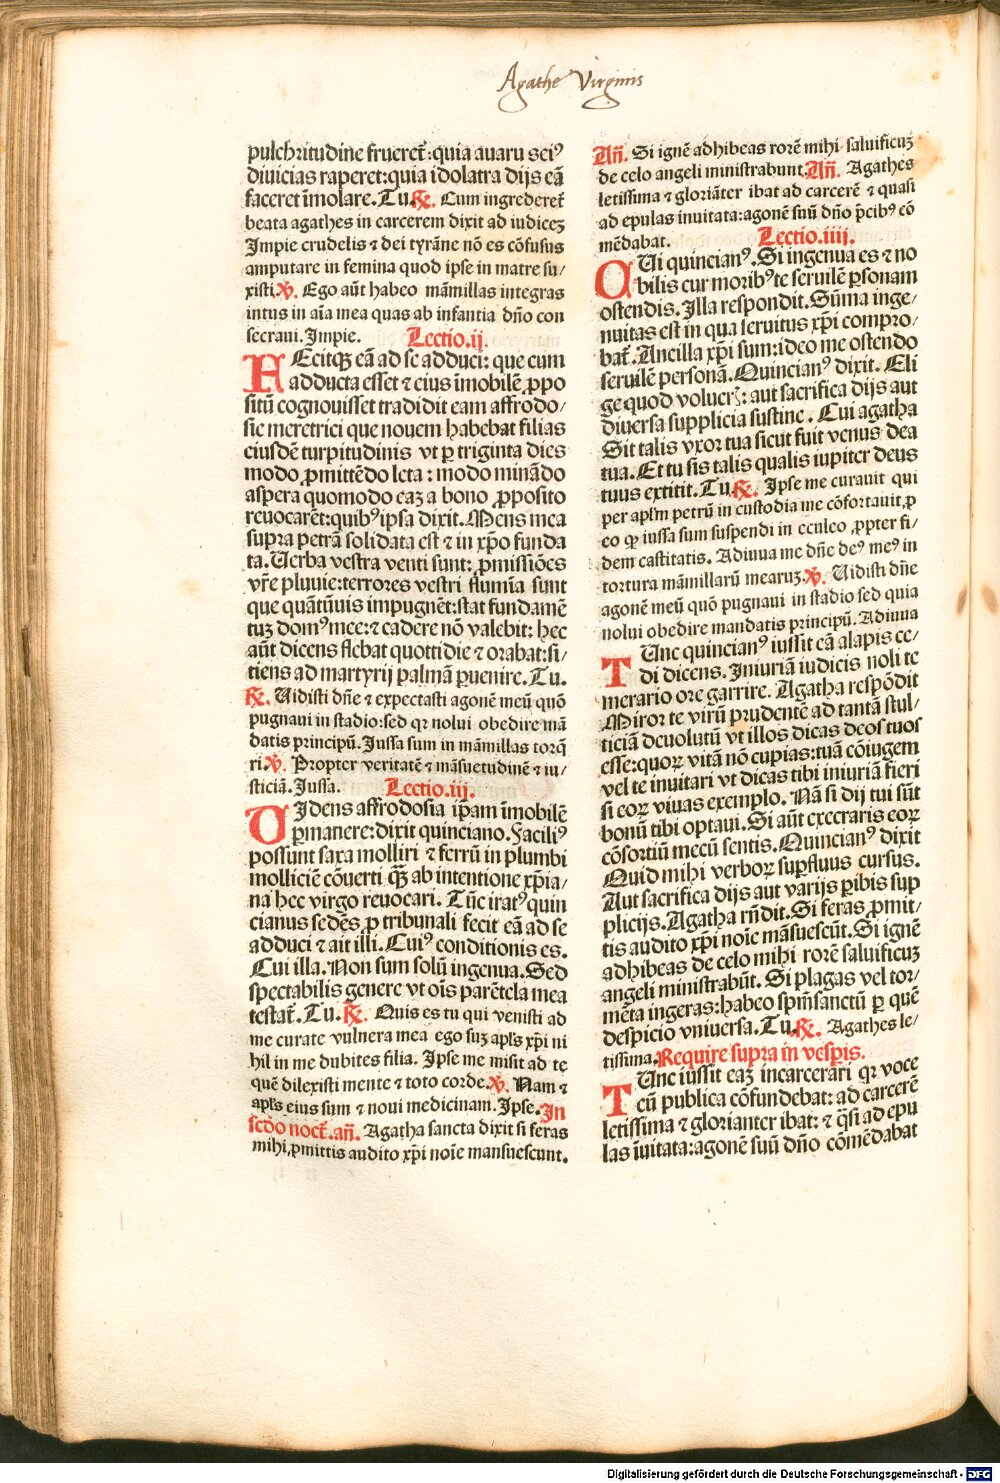 Agathe Virginis
pulchritudine frueret᷑:quia auaru sciꝰ
diuicias raperet:quia idolatra dijs eā
faceret īmolare.Tu.℟. Cum ingrederet᷑
beata agathes in carcerem dixit ad iudiceꝫ
Impie crudelis ⁊ dei tyrāne nō es cōfusus
amputare in femina quod ipse in matre su/
xisti.℣. Ego aūt habeo māmillas integras
intus in aīa mea quas ab infantia dn̄o con
secraui.Impie. Lectio.ij.
FEcitqꝫ eā ad se adduci: que cum
adducta esset ⁊ eius īmobilē ꝓpo
sitū cognouisset tradidit eam affrodo/
sie meretrici que nouem habebat filias
eiusdē turpitudinis vt ꝑ triginta dies
modo ꝓmittēdo leta : modo minādo
aspera quomodo eaꝫ a bono ꝓposito
reuocarēt:quibꝰ ipsa dixit.Mens mea
supra petrā solidata est ⁊ in xp̄o funda
ta.Uerba vestra venti sunt: ꝓmissiōes
vr̄e pluuie:terrores vestri flumīa sunt
que quātūuis impugnēt:stat fundamē
tuꝫ domꝰ mee:⁊ cadere nō valebit: hec
aūt dicens flebat quottidie ⁊ orabat:si/
tiens ad martyrij palmā ꝑuenire.Tu.
℟. Uidisti dn̄e ⁊ expectasti agonē meū quō
pugnaui in stadio:sed qꝛ nolui obedire mā
datis principū.Iussa sum in māmillas torq̄
ri.℣. Propter veritatē ⁊ māsuetudinē ⁊ iu/
sticiā.Iussa. Lectio.iij.
UIdens affrodosia ip̄am īmobilē
ꝑmanere:dixit quinciano.Faciliꝰ
possunt saxa molliri ⁊ ferrū in plumbi
molliciē cōuerti qꝫ̄ ab intentione xp̄ia/
na hec virgo reuocari. Tūc iratꝰ quin
cianus sedēs ꝓ tribunali fecit eā ad se
adduci ⁊ ait illi.Cuiꝰ conditionis es.
Cui illa.Non sum solū ingenua.Sed
spectabilis genere vt oīs parētela mea
testat᷑.Tu.℟. Quis es tu qui venisti ad
me curate vulnera mea ego suꝫ apl̄s xp̄i ni
hil in me dubites filia. Ipse me misit ad te
quē dilexisti mente ⁊ toto corde.℣. Nam ⁊
apl̄s eius sum ⁊ noui medicinam.Ipse.In
scd̄o noct̄.an̄. Agatha sancta dixit si feras
mihi ꝓmittis audito xp̄i noīe mansuescunt.
An̄. Si ignē adhibeas rorē mihi saluificuꝫ
de celo angeli ministrabunt.An̄. Agathes
letissima ⁊ gloriāter ibat ad carcerē ⁊ quasi
ad epulas inuitata:agonē suū dn̄o p̄cibꝰ cō
mēdabat. Lectio.iiij.
QUi quincianꝰ.Si ingenua es ⁊ no
bilis cur moribꝰ te seruilē ꝑsonam
ostendis.Illa respondit.Sūma inge/
nuitas est in qua seruitus xp̄i compro/
bat᷑.Ancilla xp̄i sum:ideo me ostendo
seruilē personā.Quincianꝰ dixit. Eli
ge quod volueꝝ: aut sacrifica dijs aut
diuersa supplicia sustine . Cui agatha
Sit talis vxor tua sicut fuit venus dea
tua.Et tu sis talis qualis iupiter deus
tuus extitit.Tu.℟. Ipse me curauit qui
per apl̄m petrū in custodia me cōfortauit ꝓ
eo ꝙ iussa sum suspendi in eculeo ꝓpter fi/
dem castitatis. Adiuua me dn̄e deꝰ meꝰ in
tortura māmillarū mearuꝫ.℣. Uidisti dn̄e
agonē meū quō pugnaui in stadio sed quia
nolui obedire mandatis principū.Adiuua
TUnc quincianꝰ iussit eā alapis ce/
di dicens.Iniuriā iudicis noli te
merario ore garrire. Agatha respōdit
Miror te virū prudentē ad tantā stul/
ticiā deuolutū vt illos dicas deos tuos
esse:quoꝝ vitā nō cupias:tuā cōiugem
vel te inuitari vt dicas tibi iniuriā fieri
si eoꝝ viuas exemplo. Nā si dij tui sūt
bonū tibi optaui.Si aūt execraris eoꝝ
cōsortiū mecū sentis.Quincianꝰ dixit
Quid mihi verboꝝ suꝑfluus cursus.
Aut sacrifica dijs aut varijs ꝑibis sup
plicijs.Agatha rn̄dit.Si feras ꝓmit/
tis audito xp̄i noīe māsuescūt.Si ignē
adhibeas de celo mihi rorē saluificuꝫ
angeli ministrabūt. Si plagas vel tor/
mēta ingeras:habeo spm̄sanctū ꝑ quē
despicio vniuersa.Tu.℟. Agathes le/
tissima.Require supra in vesꝑis.
TUnc iussit eaꝫ incarcerari qꝛ voce
cū publica cōfundebat: ad carcerē
letissima ⁊ glorianter ibat: ⁊ q̄si ad epu
las īuitata:agonē suū dn̄o cōmēdabat
Digitalisierung gefördert durch die Deutsche Forschungsgemeinschaft - DFG